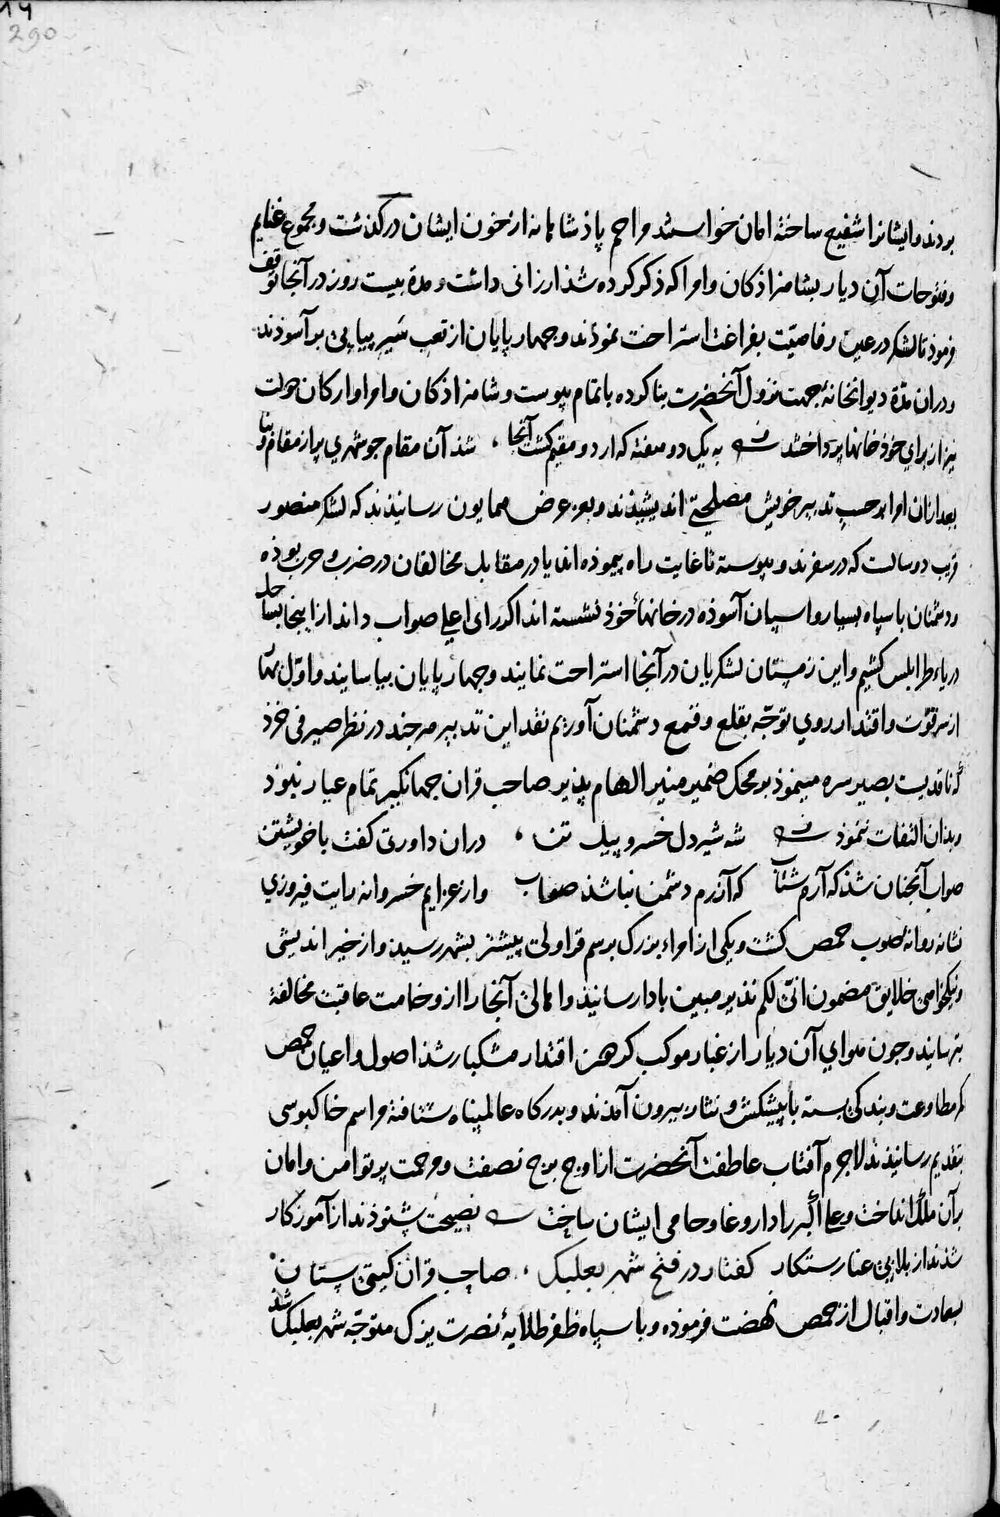 290
بودند و ایشانرا شفیع ساخته امان خواستند مراحم پاذشاهانه از خون ایشان درکذشت و مجموع غنایم
و فتوحات آن دیار بشاهزاذکان و امرا که ذکر کرده شذ ارزانی داشت و مدة بیست روز در آنجا توقف
فرموذ تا لشکر در عین رفاهیّت بفراغت استراحت نموذند و جهارپایان از تعب سَیر پیاپی برآسوذند
و دران مدّة دیوانخانهٔ جهت نزول آنحضرت بنا کرده باتمام پیوست و شاهزاذکان و امرا و ارکان دولت
نیز از برای خوذ خانها پرداختند به یک دو هفته که اردو مقیم کشت آنجا ، شذ آن مقام جو شهری پر از مقام و بنا
بعد ازان امرا بر حسب تدبیر خویش مصلحتی اندیشیذند و بعز عرض همایون رسانیذند که لشکر منصور
قریب دو سالست که در سفرند و پیوسته تا غایت راه پیموذه اند یا در مقابل مخالفان در ضرب و حرب بوذه
و دشمنان با سپاه بسیار و اسپان آسوذه در خانهاء خوذ نشسته اند اکر رای اعلی صواب داند از اینجا بساحل
دریاء طرابلس کشیم و این زمستان لشکریان در آنجا استراحت نمایند و جهارپایان بیاسایند و اوّل بهار
از سر قوّت و اقتدار روی توجّه بقلع و قمع دشمنان آوریم نقد این تدبیر هرجند در نظر صیرفی خرذ
که ناقدیست بصیر سره مینموذ بر محک ضمیر منیر الهام پذیر صاحب قران جهانکیر تمام عیار نبوذ
و بذان التفات ننموذ شه شیردل خسرو پیل تن ، دران داوری کفت با خویشتن
صواب آنجنان شذ که آرم شتاب که آزرم دشمن نباشذ صواب و از عزایم خسروانه رایت فیروزی
نشانه روانهٔ صوب حمص کشت و یکی از امراء بزرک برسم قراولی پیشتر بشهر رسیذ و از خیر اندیشی
و نیکخواهی خلایق مضمون انّی لکم نذیر مبین بادا رسانیذ و اهالی آنجا را از وخامت عاقبت مخالفهٔ
بترسانیذ و جون هوای آن دیار از غبار موکب کردون اقتدار مشکبار شذ اصول و اعیان حمص
کمر مطاوعت و بندکی بسته با پیشکش و نثار بیرون آمذند و بدرکاه عالمپناه شتافتهٔ مراسم خاکبوسی
بتقدیم رسانیذند لاجرم آفتاب عاطفت آنحضرت از اوج برج نصفت و مرحمت پرتو امن و امان
بر آن ملک انداخت و علی اکبر را داروغا و حامی ایشان ساخت نصیحت شنوذند از آموزکار
شذند از بلا بی عنا رستکار کفتار در فتح شهر بعلبک ، صاحب قران کیتی ستان
بسعادت و اقبال از حمص نهضت فرموذه و با سپاه ظفر طلایهٔ نصرت یزک متوجّه شهر بعلبک شذ